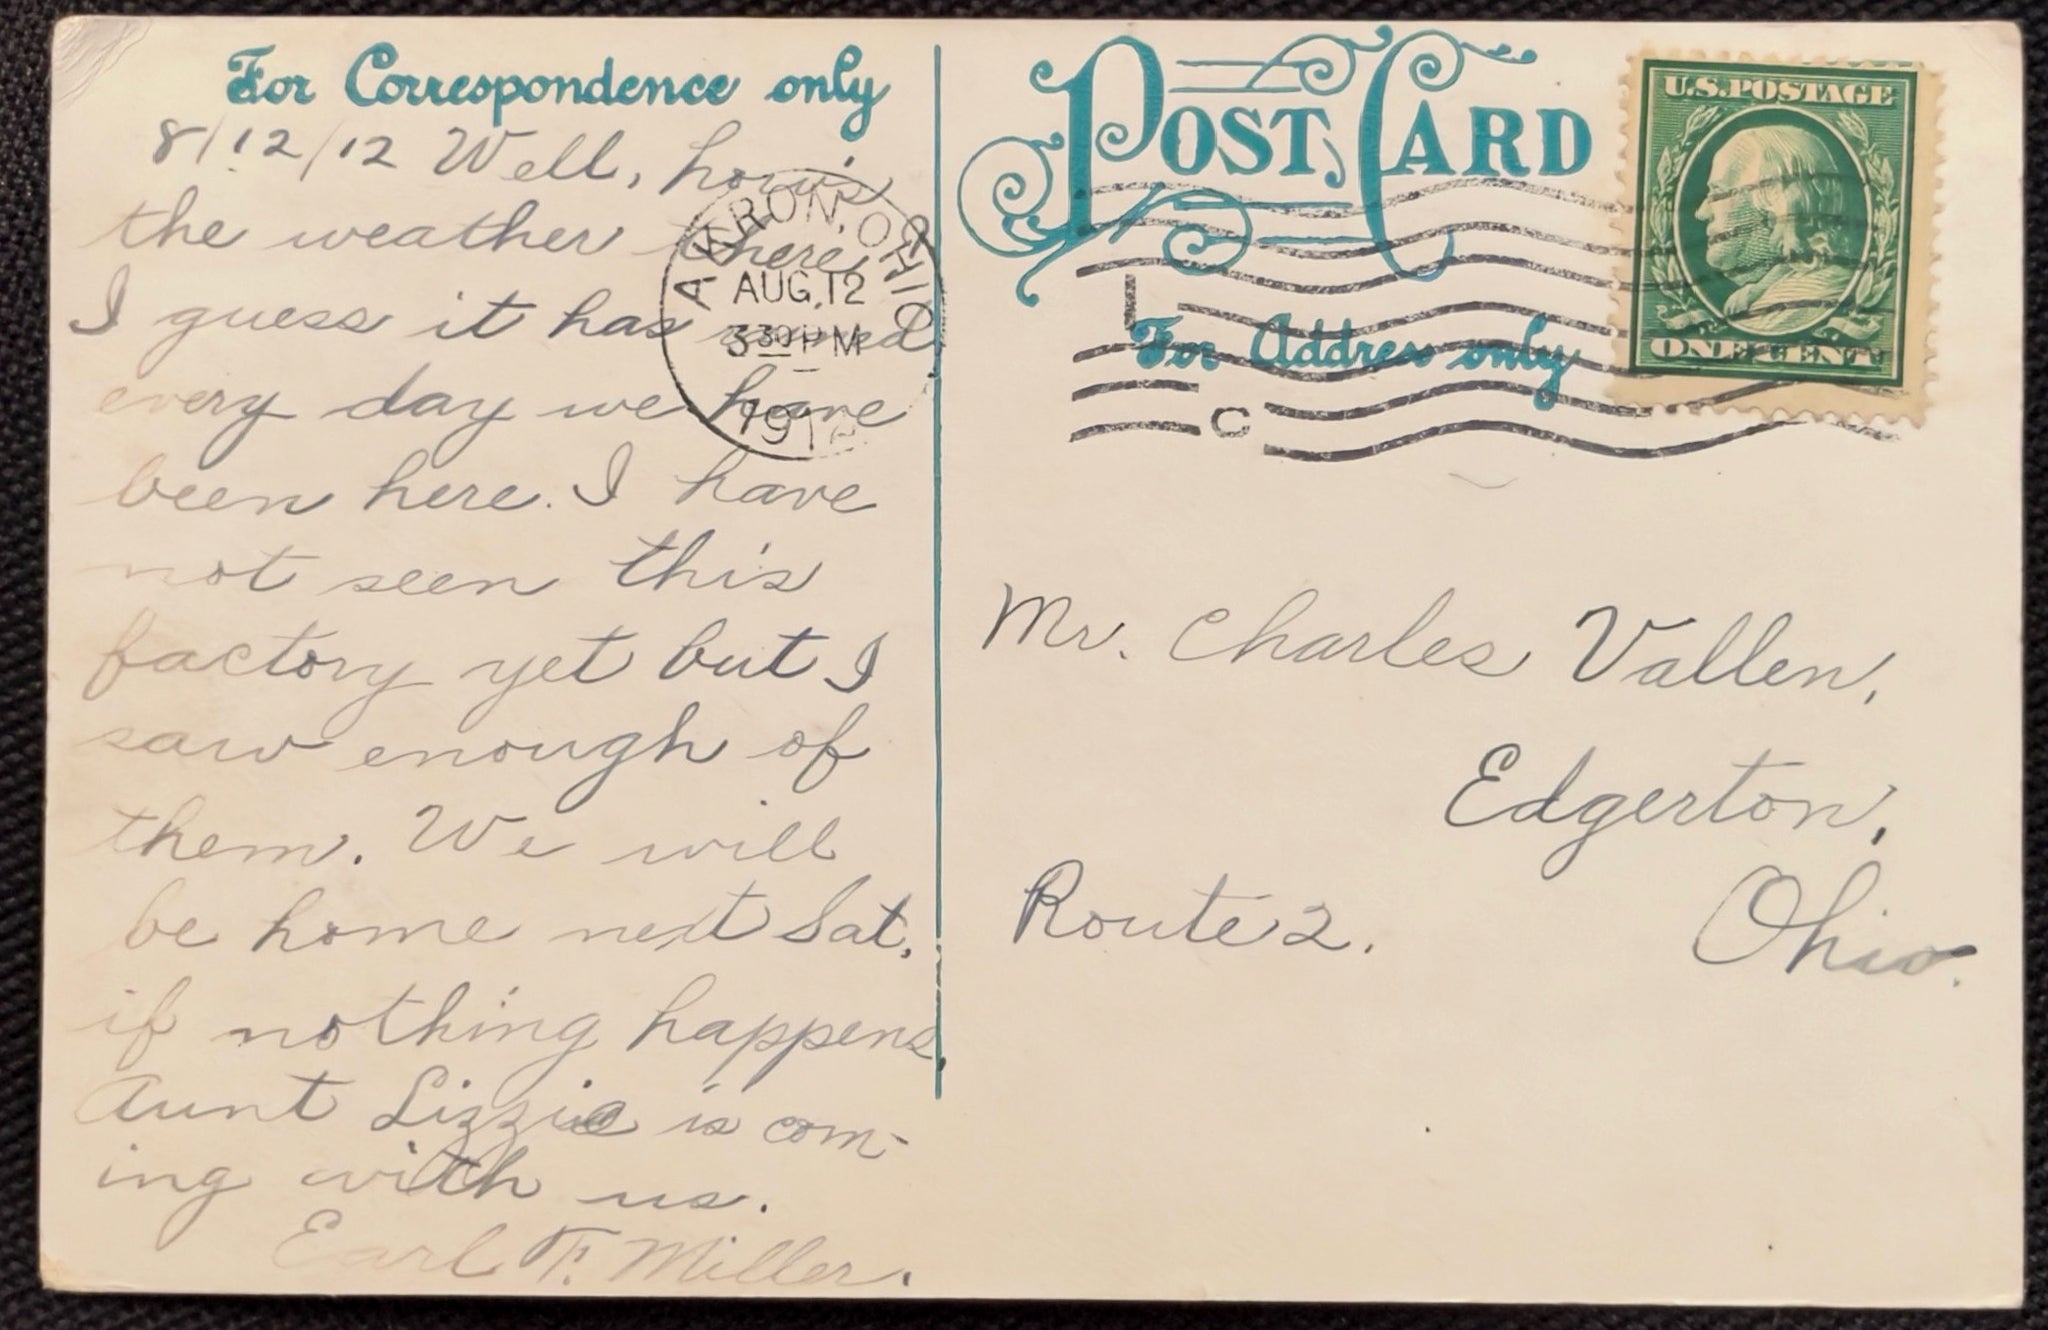 For Correspondence only
8/12/12 Well, how's
the weather there,
I guess it has rained
every day we have
been here. I have
not seen this
factory yet but I
saw enough of
them. We will
be home next Sat,
if nothing happens,
Aunt Lizzie is com-
ing with us.
Earl F. Miller.
AKRON, OHIO
AUG, 12
3 30 PM
1912
POST CARD
For Address only
U.S. POSTAGE
ONE CENT
L
C
Mr. Charles Vallen,
Edgerton,
Route 2. Ohio.